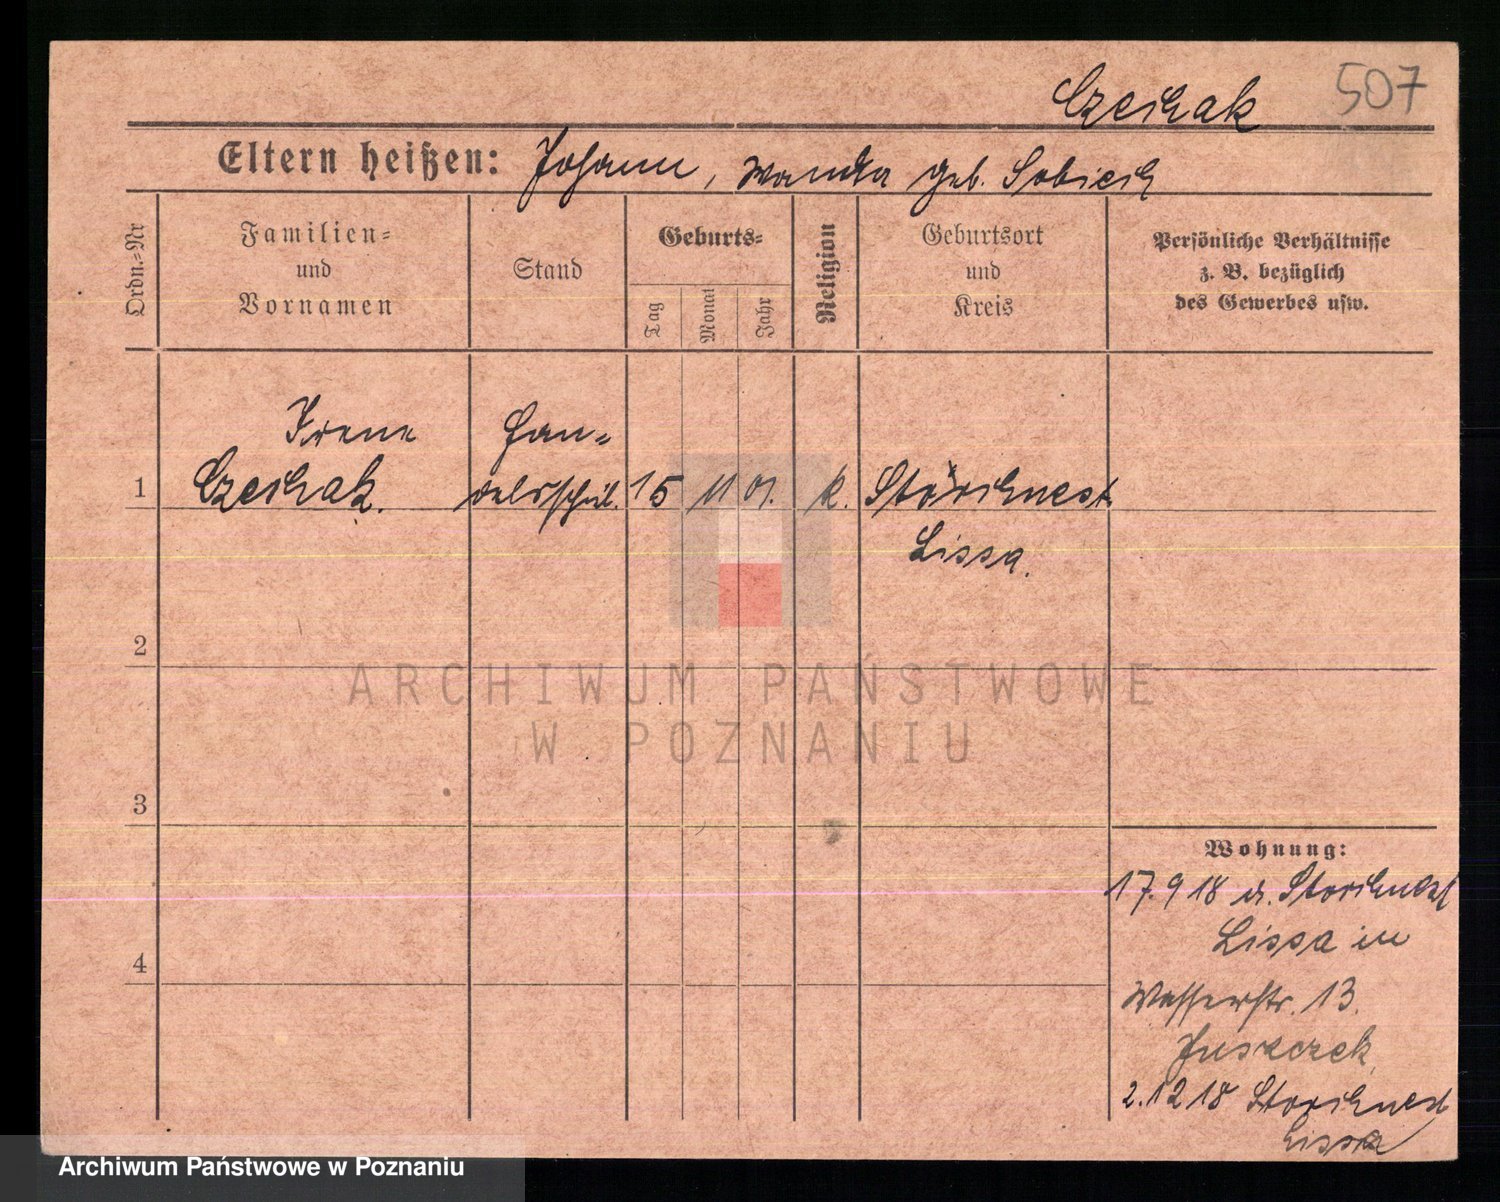 507
Czechak
Eltern heißen: Johann, Wanda geb. Sobiech
Ordn.-Nr
Familien-
und
Vornamen
Stand
Geburts-
Tag
Monat
Jahr
Religion
Geburtsort
und
Kreis
Persönliche Verhältnisse
z. B. bezüglich
des Gewerbes usw.
Irene Han-
1 Czechak. delsschül. 15 11 01. k. Storchnest
Lissa.
2
3
4
Wohnung:
17.9 18 v. Storchnest
Lissa in
Wasserstr. 13.
Juszczek
2.12 18 Storchnest
Lissa
ARCHIWUM PAŃSTWOWE
W POZNANIU
Archiwum Państwowe w Poznaniu